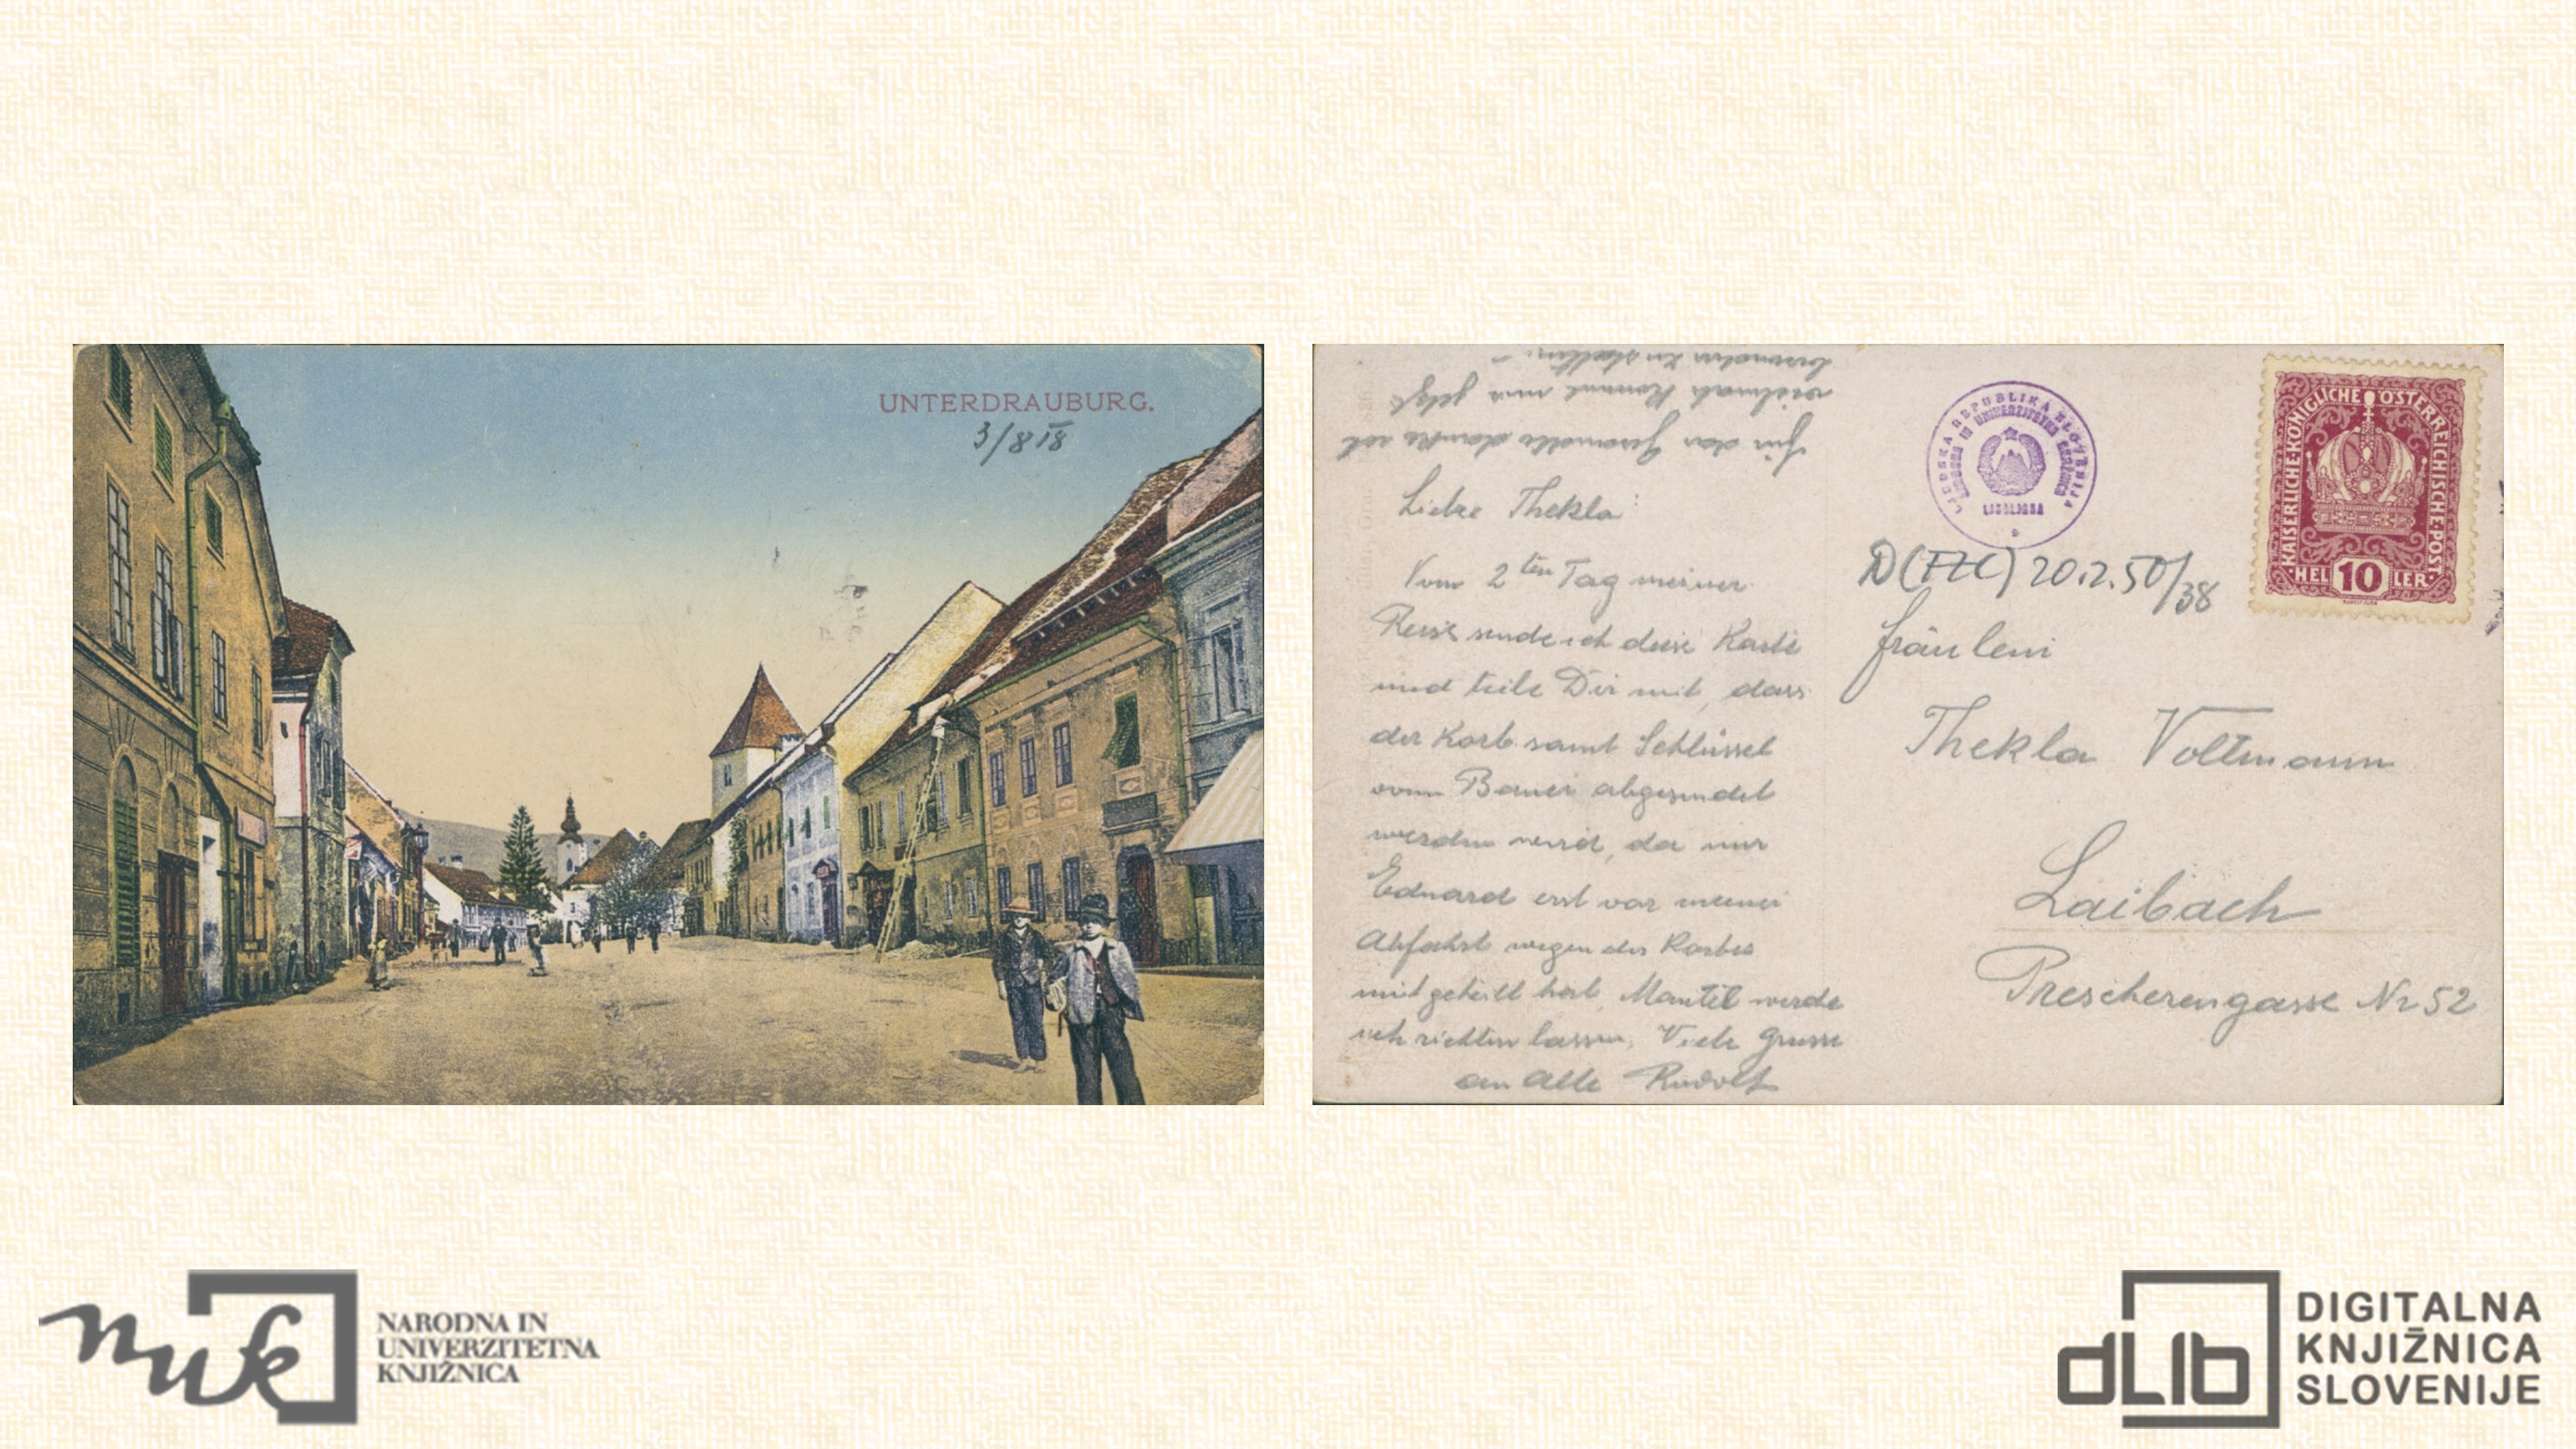 UNTERDRAUBURG.
3/8 18
Liebe Thekla
Vom 2ten Tag meiner
Reise sende ich diese Karte
und teile Dir mit, dass
der Korb samt Schlüssel
vom Bauer abgesendet
werden wird, da mir
Eduard erst vor meiner
Abfahrt wegen des Korbes
mitgeteilt hat. Mantel werde
ich richten lassen. Viele Grüsse
an Alle Rudolf
LJUDSKA REPUBLIKA SLOVENIJA
NARODNA IN UNIVERZITETNA KNJIŽNICA
LJUBLJANA
20.2.50/38
KAISERLICHE KÖNIGLICHE ÖSTERREICHISCHE POST
HEL 10 LER
Fräulein
Thekla Voltmann
Laibach
Prescherengasse Nr 52
nuk
NARODNA IN
UNIVERZITETNA
KNJIŽNICA
dLib
DIGITALNA
KNJIŽNICA
SLOVENIJE